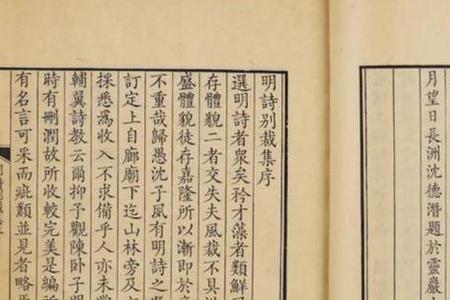 月望日長洲沈德潛題於靈巖
明詩別裁集序
選明詩者衆矣矜才藻者類鮮
存體貌二者交失夫風裁不具
盛體貌徒存嘉隆所以漸即於
不重哉歸愚沈子夙有明詩之
訂定上自廊廟下迄山林旁及
採悉爲收入不求備乎人亦未
輔翼詩教云爾抑予觀陳臥子明
時有刪潤故所收較完美是編
有名言可采而疵纇並見者略